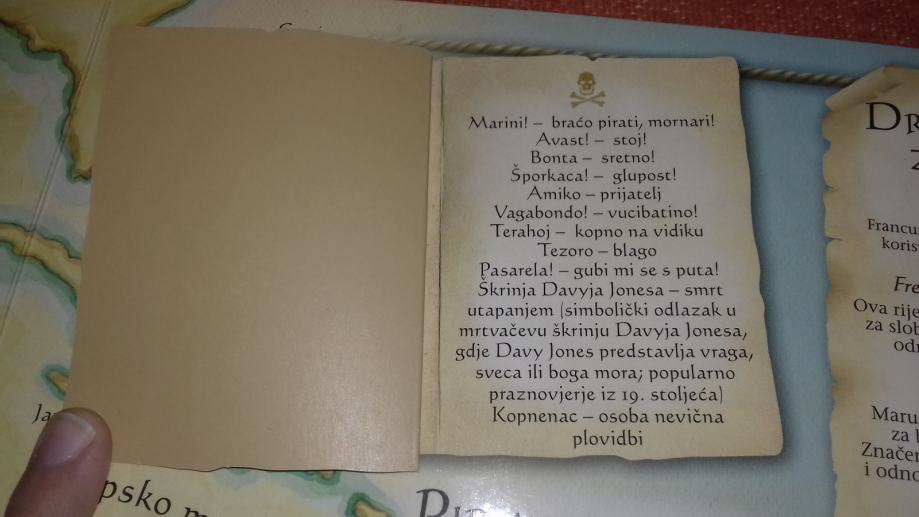 Marini! – braćo pirati, mornari!
Avast! – stoj!
Bonta – sretno!
Šporkaca! – glupost!
Amiko – prijatelj
Vagabondo! – vucibatino!
Terahoj – kopno na vidiku
Tezoro – blago
Pasarela! – gubi mi se s puta!
Škrinja Davyja Jonesa – smrt
utapanjem (simbolički odlazak u
mrtvačevu škrinju Davyja Jonesa,
gdje Davy Jones predstavlja vraga,
sveca ili boga mora; popularno
praznovjerje iz 19. stoljeća)
Kopnenac – osoba nevična
plovidbi
Ova
za
Maru
za
i